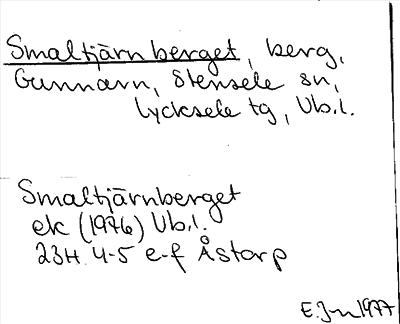 Smaltjärnberget, berg,
Gunnarn, Stensele sn,
Lycksele tg, Vb.l.
Smaltjärnberget
ek (1976) Vb.l.
23H 4-5 e-f Åstorp
1977